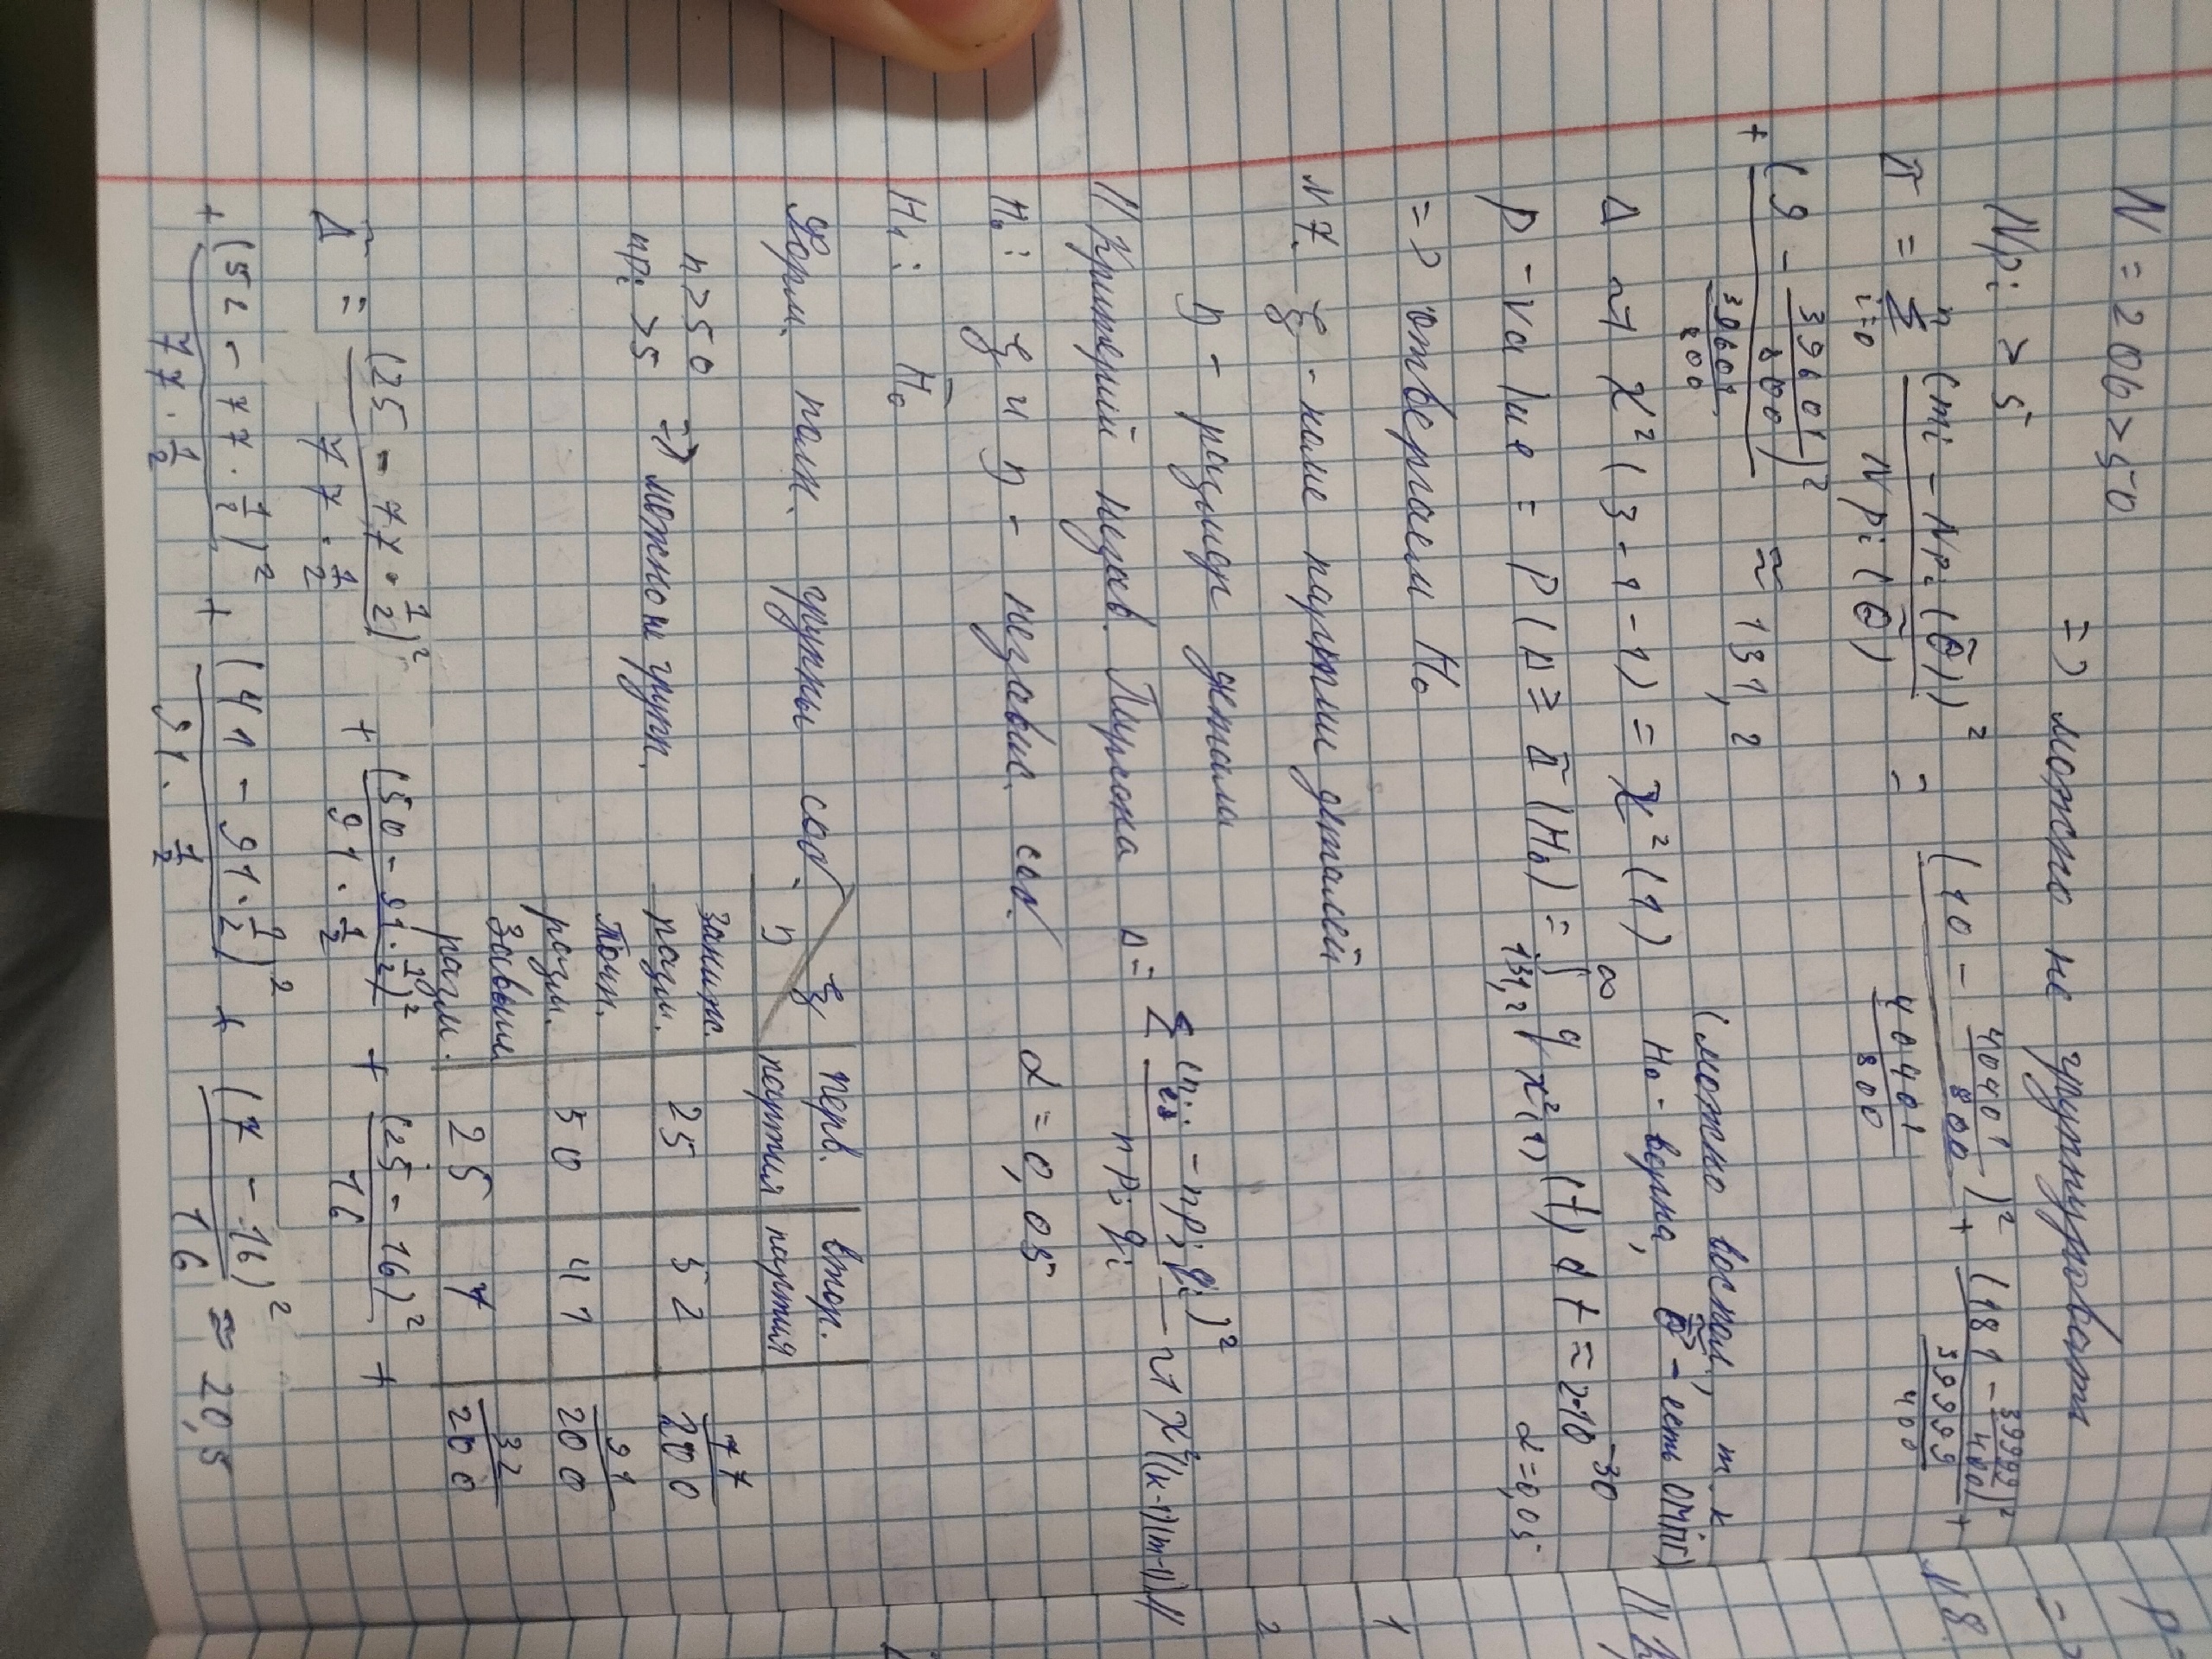 N = 206 > 50
=> можно не группировать
Npᵢ > 5
Δ̃ = Σ_{i=0}^{n} (mᵢ - Npᵢ(θ̃))² / Npᵢ(θ̃) = (10 - 40401/800)² / (40401/800) + (181 - 39999/400)² / (39999/400) +
+ (9 - 39601/800)² / (39601/800) ≈ 131,2
(можно воспол., т.к.
H₀ - верна, θ̃ - есть ОМПГ)
Δ ~> χ²(3-1-1) = χ²(1)
p-value = P(Δ ≥ Δ̃ (H₀) = ∫_{131,2}^{∞} q_{χ²(1)}(t) dt ≈ 2·10⁻³⁰
α = 0,05
=> отвергаем H₀
N7. ξ - номе партии деталей
η - размер детали
// Критерий незав. Пирсона Δ = Σ (nᵢⱼ - npⱼqᵢ)² / npⱼqᵢ ~> χ²((k-1)(m-1)) //
H₀: ξ и η - независ. соб. α = 0,05
H₁: H̄₀
Форм. полн. группы соб.
n > 50
npᵢ > 5 => можно не групп.
η \ ξ | перв. партия | втор. партия |
заниж. разм. | 25 | 52 | 77/200
точн. разм. | 50 | 41 | 91/200
завыш. разм. | 25 | 7 | 32/200
Δ̃ = (25 - 77·1/2)² / (77·1/2) + (50 - 91·1/2)² / (91·1/2) + (25 - 16)² / 16 +
+ (52 - 77·1/2)² / (77·1/2) + (41 - 91·1/2)² / (91·1/2) + (7 - 16)² / 16 ≈ 20,5
p=
=>
N8.
1
2